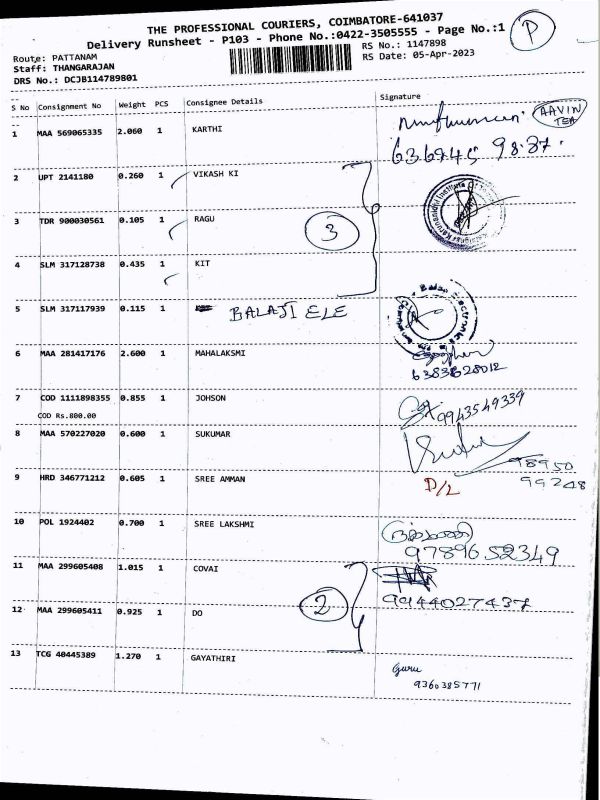 THE PROFESSIONAL COURIERS, COIMBATORE-641037
Delivery Runsheet - P103 - Phone No.:0422-3505555 - Page No.:1
P
Route: PATTANAM
RS No.: 1147898
Staff: THANGARAJAN
RS Date: 05-Apr-2023
DRS No.: DCJB114789801
S No Consignment No Weight PCS Consignee Details Signature
AAVIN
TEA
1 MAA 569065335 2.060 1 KARTHI
2 UPT 2141180 0.260 1 VIKASH KI
3 TDR 900030561 0.105 1 RAGU
3
4 SLM 317128738 0.435 1 KIT
5 SLM 317117939 0.115 1 BALAJI ELE
6 MAA 281417176 2.600 1 MAHALAKSMI
6383628012
7 COD 1111898355 0.855 1 JOHSON 9943549339
COD Rs.800.00
8 MAA 570227020 0.600 1 SUKUMAR
98950
99248
9 HRD 346771212 0.605 1 SREE AMMAN D/L
10 POL 1924402 0.700 1 SREE LAKSHMI
9789652349
11 MAA 299605408 1.015 1 COVAI
9944027437
2
12 MAA 299605411 0.925 1 DO
13 TCG 40445389 1.270 1 GAYATHIRI Guru
9360385771